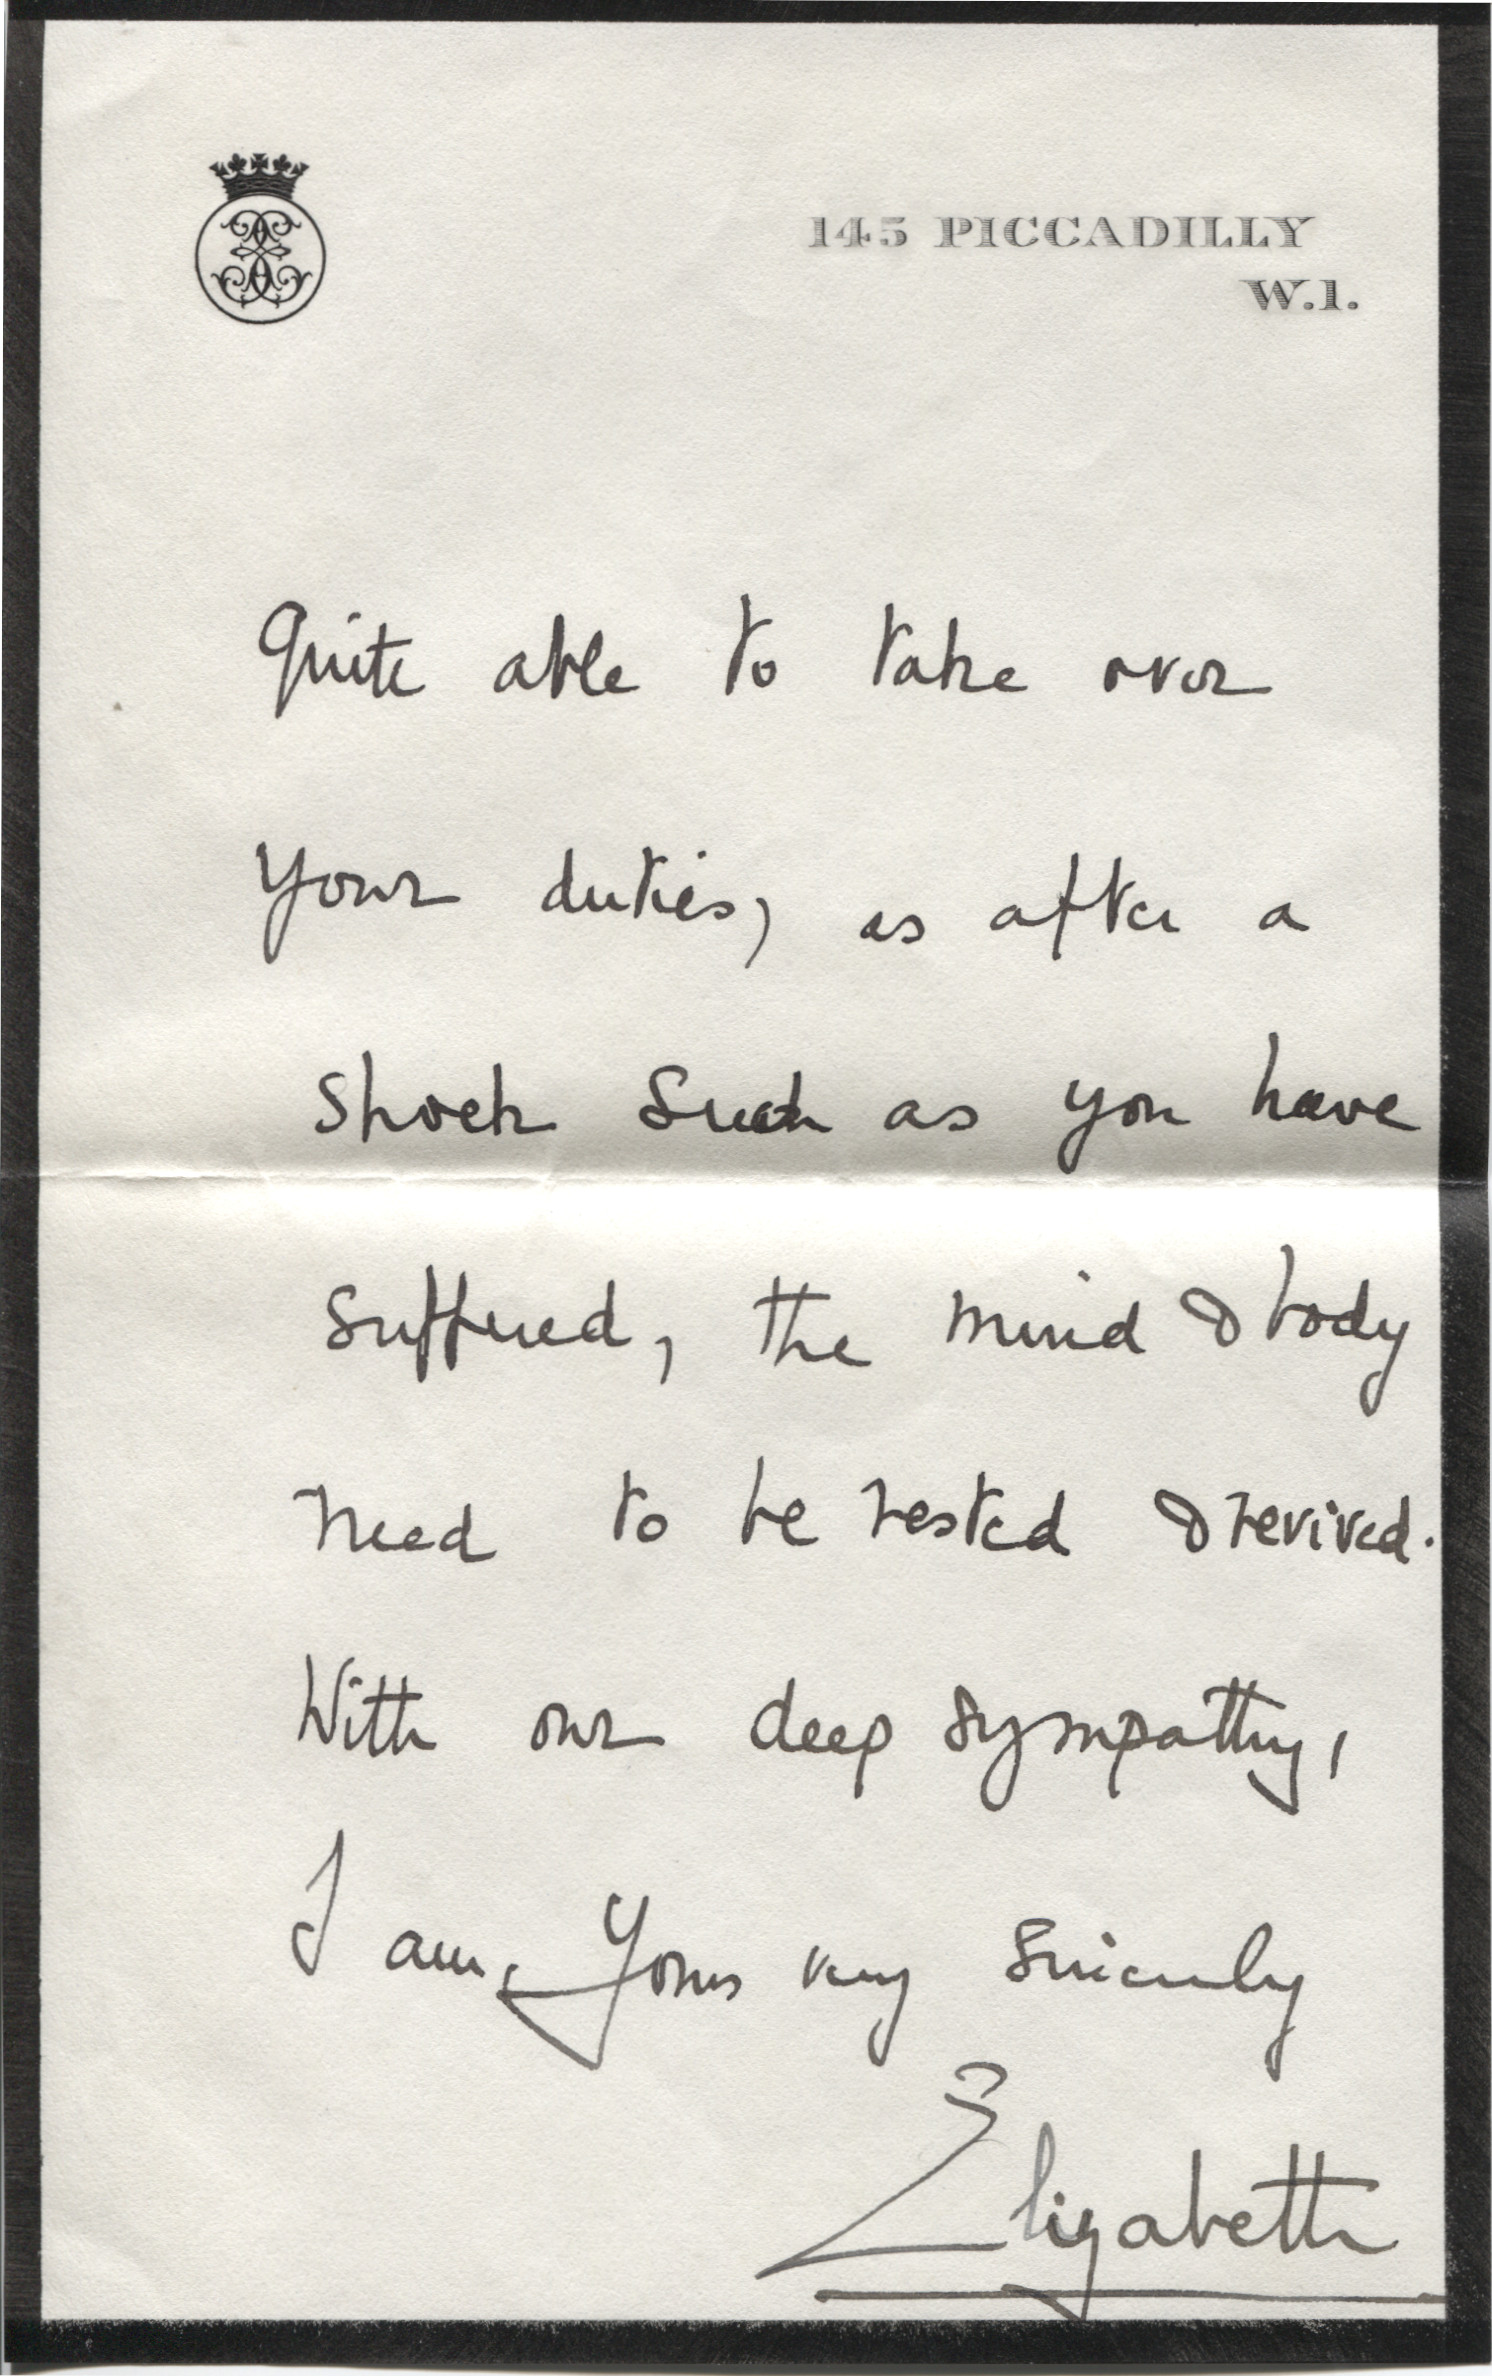 145 PICCADILLY
W.1.
Quite able to take over
your duties, as after a
shock such as you have
suffered, the mind & body
need to be rested & revived.
With our deep sympathy,
I am, Yours very sincerely
Elizabeth